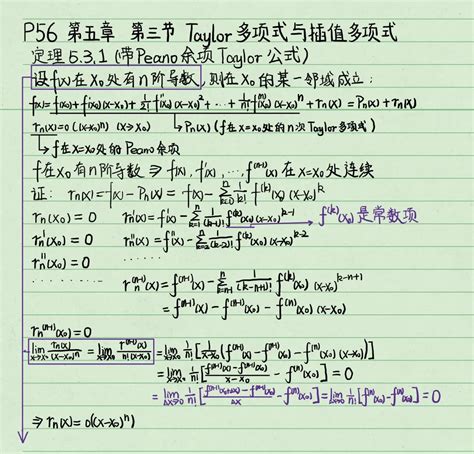 P56 第五章 第三节 Taylor多项式与插值多项式
定理5.3.1 (带Peano余项Taylor公式)
设f(x)在x₀处有n阶导数,则在x₀的某一邻域成立:
f(x)=f(x₀)+f'(x₀)(x-x₀)+1/2! f''(x₀)(x-x₀)²+···+1/n! f⁽ⁿ⁾(x₀)(x-x₀)ⁿ+rₙ(x)=Pₙ(x)+rₙ(x)
rₙ(x)=o((x-x₀)ⁿ) (x→x₀) ↳Pₙ(x)(f在x=x₀处的n次Taylor多项式)
↳f在x₀处的Peano余项
f在x₀有n阶导数⇒f(x), f'(x), ···, f⁽ⁿ⁻¹⁾(x)在x=x₀处连续
证: rₙ(x)=f(x)-Pₙ(x)=f(x)-∑ₖ₌₀ⁿ 1/k! f⁽ᵏ⁾(x₀)(x-x₀)ᵏ
rₙ(x₀)=0 rₙ'(x)=f'(x)-∑ₖ₌₁ⁿ 1/(k-1)! f⁽ᵏ⁾(x₀)(x-x₀)ᵏ⁻¹ → f⁽ᵏ⁾(x₀)是常数项
rₙ'(x₀)=0 rₙ''(x)=f''(x)-∑ₖ₌₂ⁿ 1/(k-2)! f⁽ᵏ⁾(x₀)(x-x₀)ᵏ⁻²
rₙ''(x₀)=0 ······
······ rₙ⁽ⁿ⁻¹⁾(x)=f⁽ⁿ⁻¹⁾(x)-∑ₖ₌ₙ₋₁ⁿ 1/(k-n+1)! f⁽ᵏ⁾(x₀)(x-x₀)ᵏ⁻ⁿ⁺¹
=f⁽ⁿ⁻¹⁾(x)-f⁽ⁿ⁻¹⁾(x₀)-f⁽ⁿ⁾(x₀)(x-x₀)
rₙ⁽ⁿ⁻¹⁾(x₀)=0
lim x→x₀ rₙ(x)/(x-x₀)ⁿ = lim x→x₀ r⁽ⁿ⁻¹⁾(x)/n!(x-x₀) = lim x→x₀ 1/n! [1/(x-x₀) (f⁽ⁿ⁻¹⁾(x)-f⁽ⁿ⁻¹⁾(x₀)-f⁽ⁿ⁾(x₀)(x-x₀))]
= lim x→x₀ 1/n! [(f⁽ⁿ⁻¹⁾(x)-f⁽ⁿ⁻¹⁾(x₀))/(x-x₀) - f⁽ⁿ⁾(x₀)]=0
= lim Δx→0 1/n! [(f⁽ⁿ⁻¹⁾(x₀+Δx)-f⁽ⁿ⁻¹⁾(x₀))/Δx - f⁽ⁿ⁾(x₀)]= lim Δx→0 1/n! [f⁽ⁿ⁾(x₀)-f⁽ⁿ⁾(x₀)]=0
⇒rₙ(x)=o((x-x₀)ⁿ)